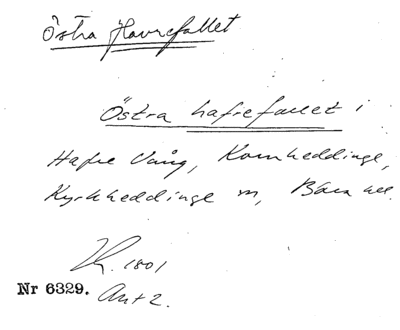 Östra Havrefallet
Östra hafrefallet i
Hafre Vång, Kornheddinge,
Kyrkheddinge m, Bara hd.
1801
Nr 6329. Akt 2.